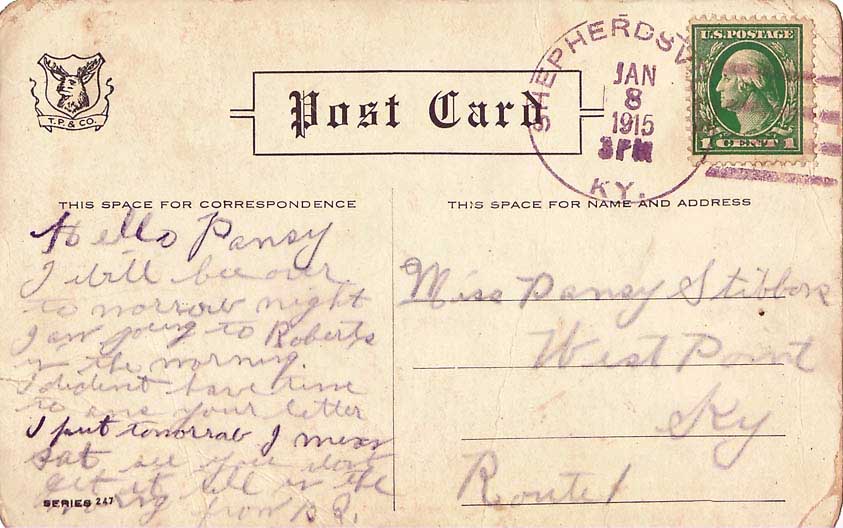 T. P. & CO.
Post Card
SHEPHERDSV
JAN
8
1915
3 PM
KY.
U.S. POSTAGE
1 CENT 1
THIS SPACE FOR CORRESPONDENCE
Hello Pansy
I will bee over
to morrow night
I am going to Roberts
in the morning.
I dident have time
to ans your letter
I put tomorrab I mean
Sat see you dont
get it till in the
from
SERIES 247
THIS SPACE FOR NAME AND ADDRESS
Miss Pansy Stibbons
West Point
Ky
Route 1